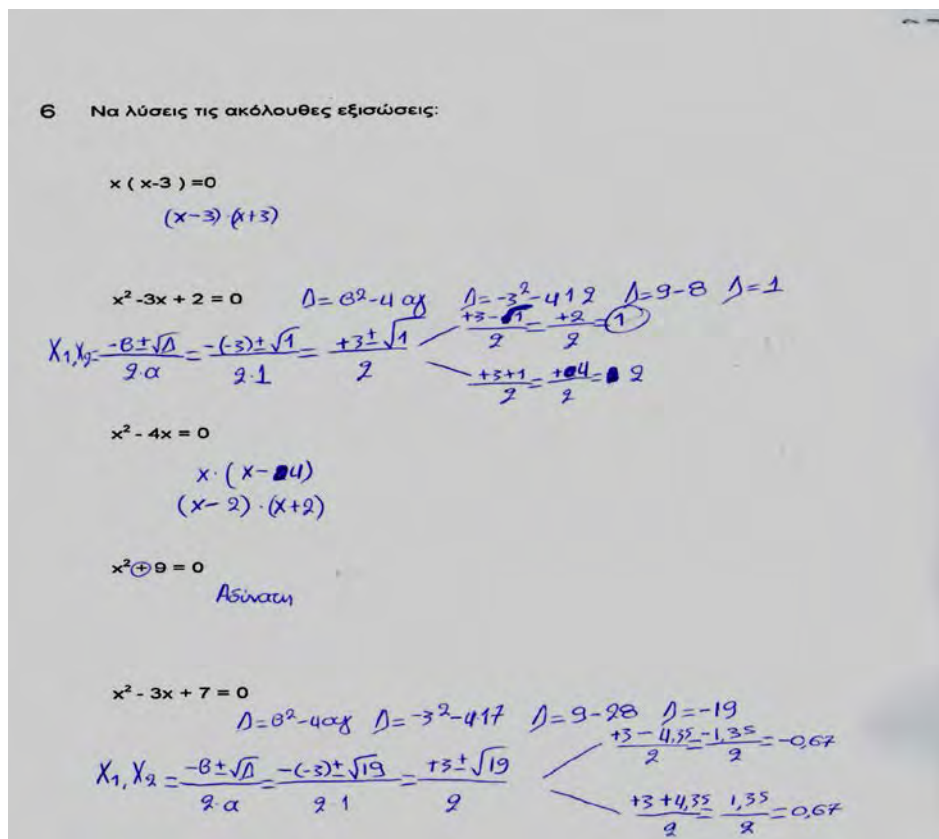 6 Να λύσεις τις ακόλουθες εξισώσεις:
x ( x-3 ) =0
(x-3)·(x+3)
x² -3x + 2 = 0 Δ=β²-4αγ Δ=-3²-4·1·2 Δ=9-8 Δ=1
X₁,X₂= (-β±√Δ)/(2·α) = (-(-3)±√1)/(2·1) = (+3±√1)/2
(+3-√1)/2 = (+2)/2 = 1
(+3+1)/2 = (+4)/2 = 2
x² - 4x = 0
x·(x-4)
(x-2)·(x+2)
x² + 9 = 0
Αδύνατη
x² - 3x + 7 = 0
Δ=β²-4αγ Δ=-3²-4·1·7 Δ=9-28 Δ=-19
X₁,X₂ = (-β±√Δ)/(2·α) = (-(-3)±√19)/(2·1) = (+3±√19)/2
(+3-4,35)/2 = (-1,35)/2 = -0,67
(+3+4,35)/2 = (1,35)/2 = 0,67